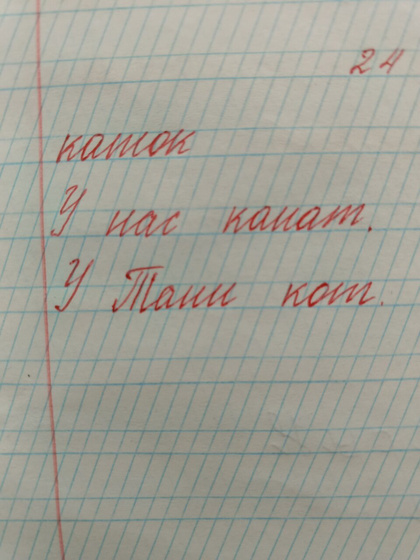 24
каток
У нас канат.
У Тани кот.